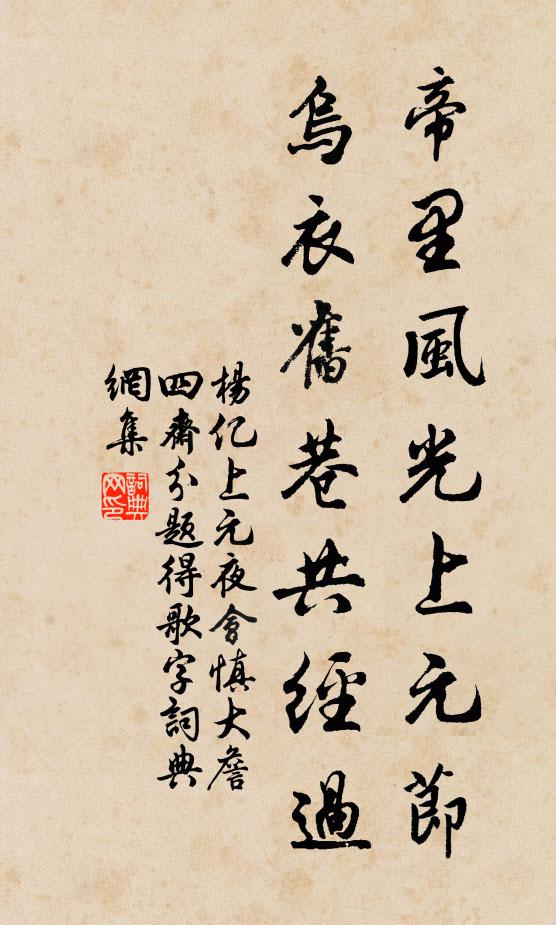 帝里風光上元節
烏衣舊巷共經過
楊亿上元夜會慎大詹
四齋分題得歌字詞典
網集
詞典网印